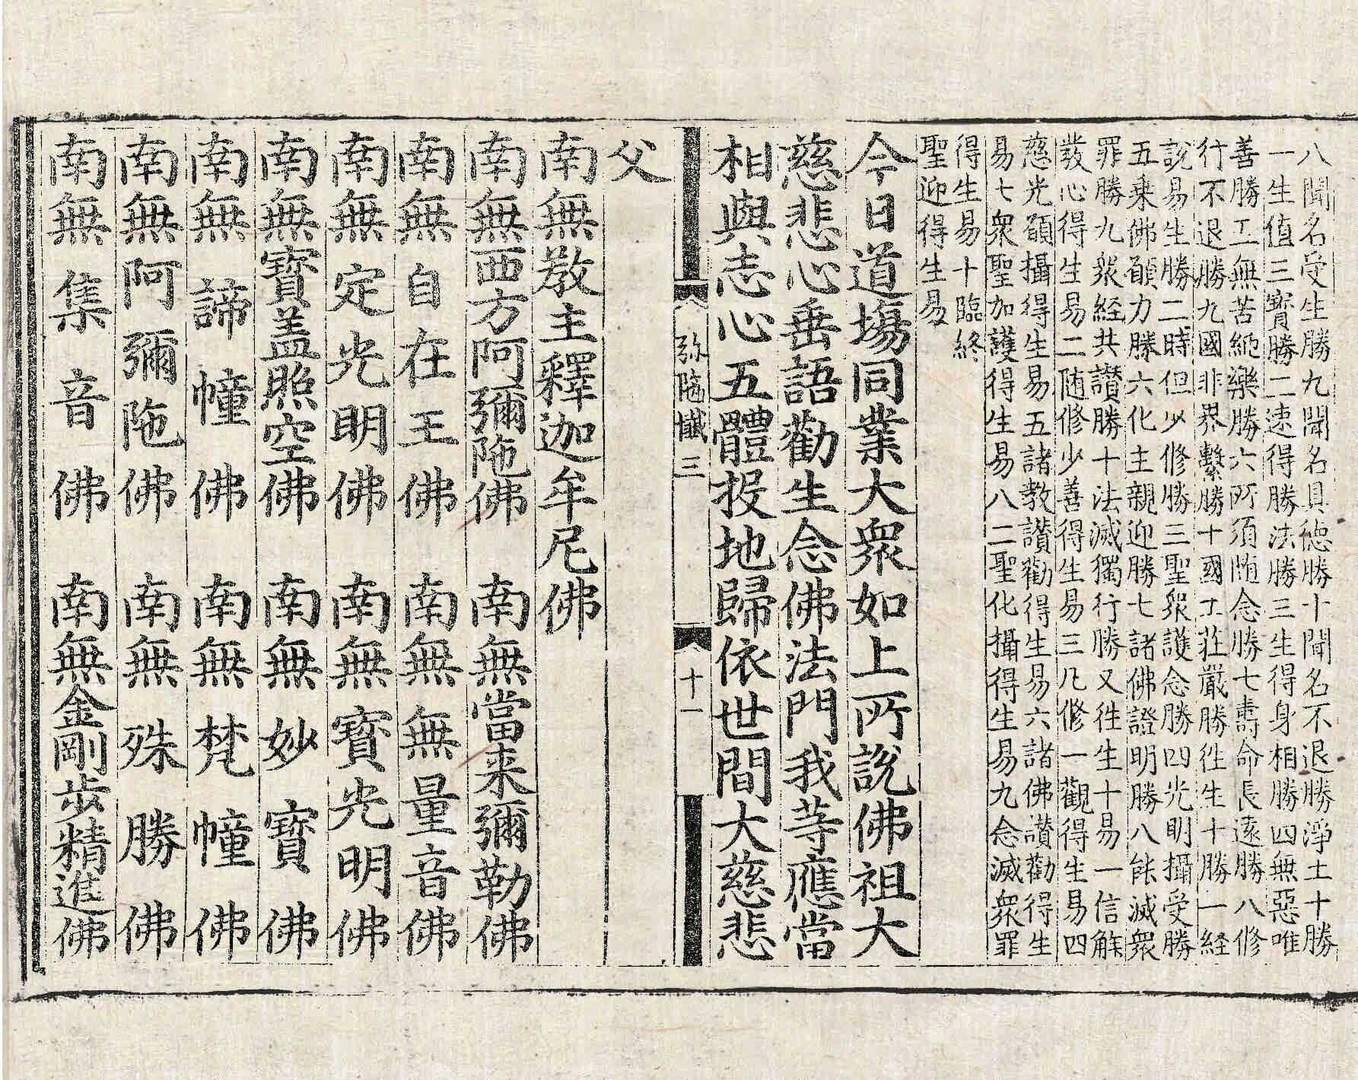 八聞名受生勝九聞名具德勝十聞名不退勝淨土十勝
一生值三寶勝二速得勝法勝三生得身相勝四無惡唯
善勝五無苦純樂勝六所須随念勝七壽命長遠勝八修
行不退勝九國非界繫勝十國土莊嚴勝徃生十勝一經
説易生勝二時但少修勝三聖衆護念勝四光明攝受勝
五乘佛願力勝六化主親迎勝七諸佛證明勝八能滅衆
罪勝九衆經共讃勝十法滅獨行勝又徃生十易一信解
發心得生易二随修少善得生易三凡修一觀得生易四
慈光願攝得生易五諸教讃勸得生易六諸佛讃勸得生
易七衆聖加護得生易八二聖化攝得生易九念滅衆罪
得生易十臨終
聖迎得生易
今日道塲同業大衆如上所説佛祖大
慈悲心垂語勸生念佛法門我等應當
相與志心五體投地歸依世間大慈悲
弥陁懺三
十一
父
南無教主釋迦牟尼佛
南無西方阿彌陁佛 南無當来彌勒佛
南無自在王佛 南無無量音佛
南無定光明佛 南無寳光明佛
南無寳盖照空佛 南無妙寳佛
南無諦幢佛 南無梵幢佛
南無阿彌陁佛 南無殊勝佛
南無集音佛 南無金剛步精進佛